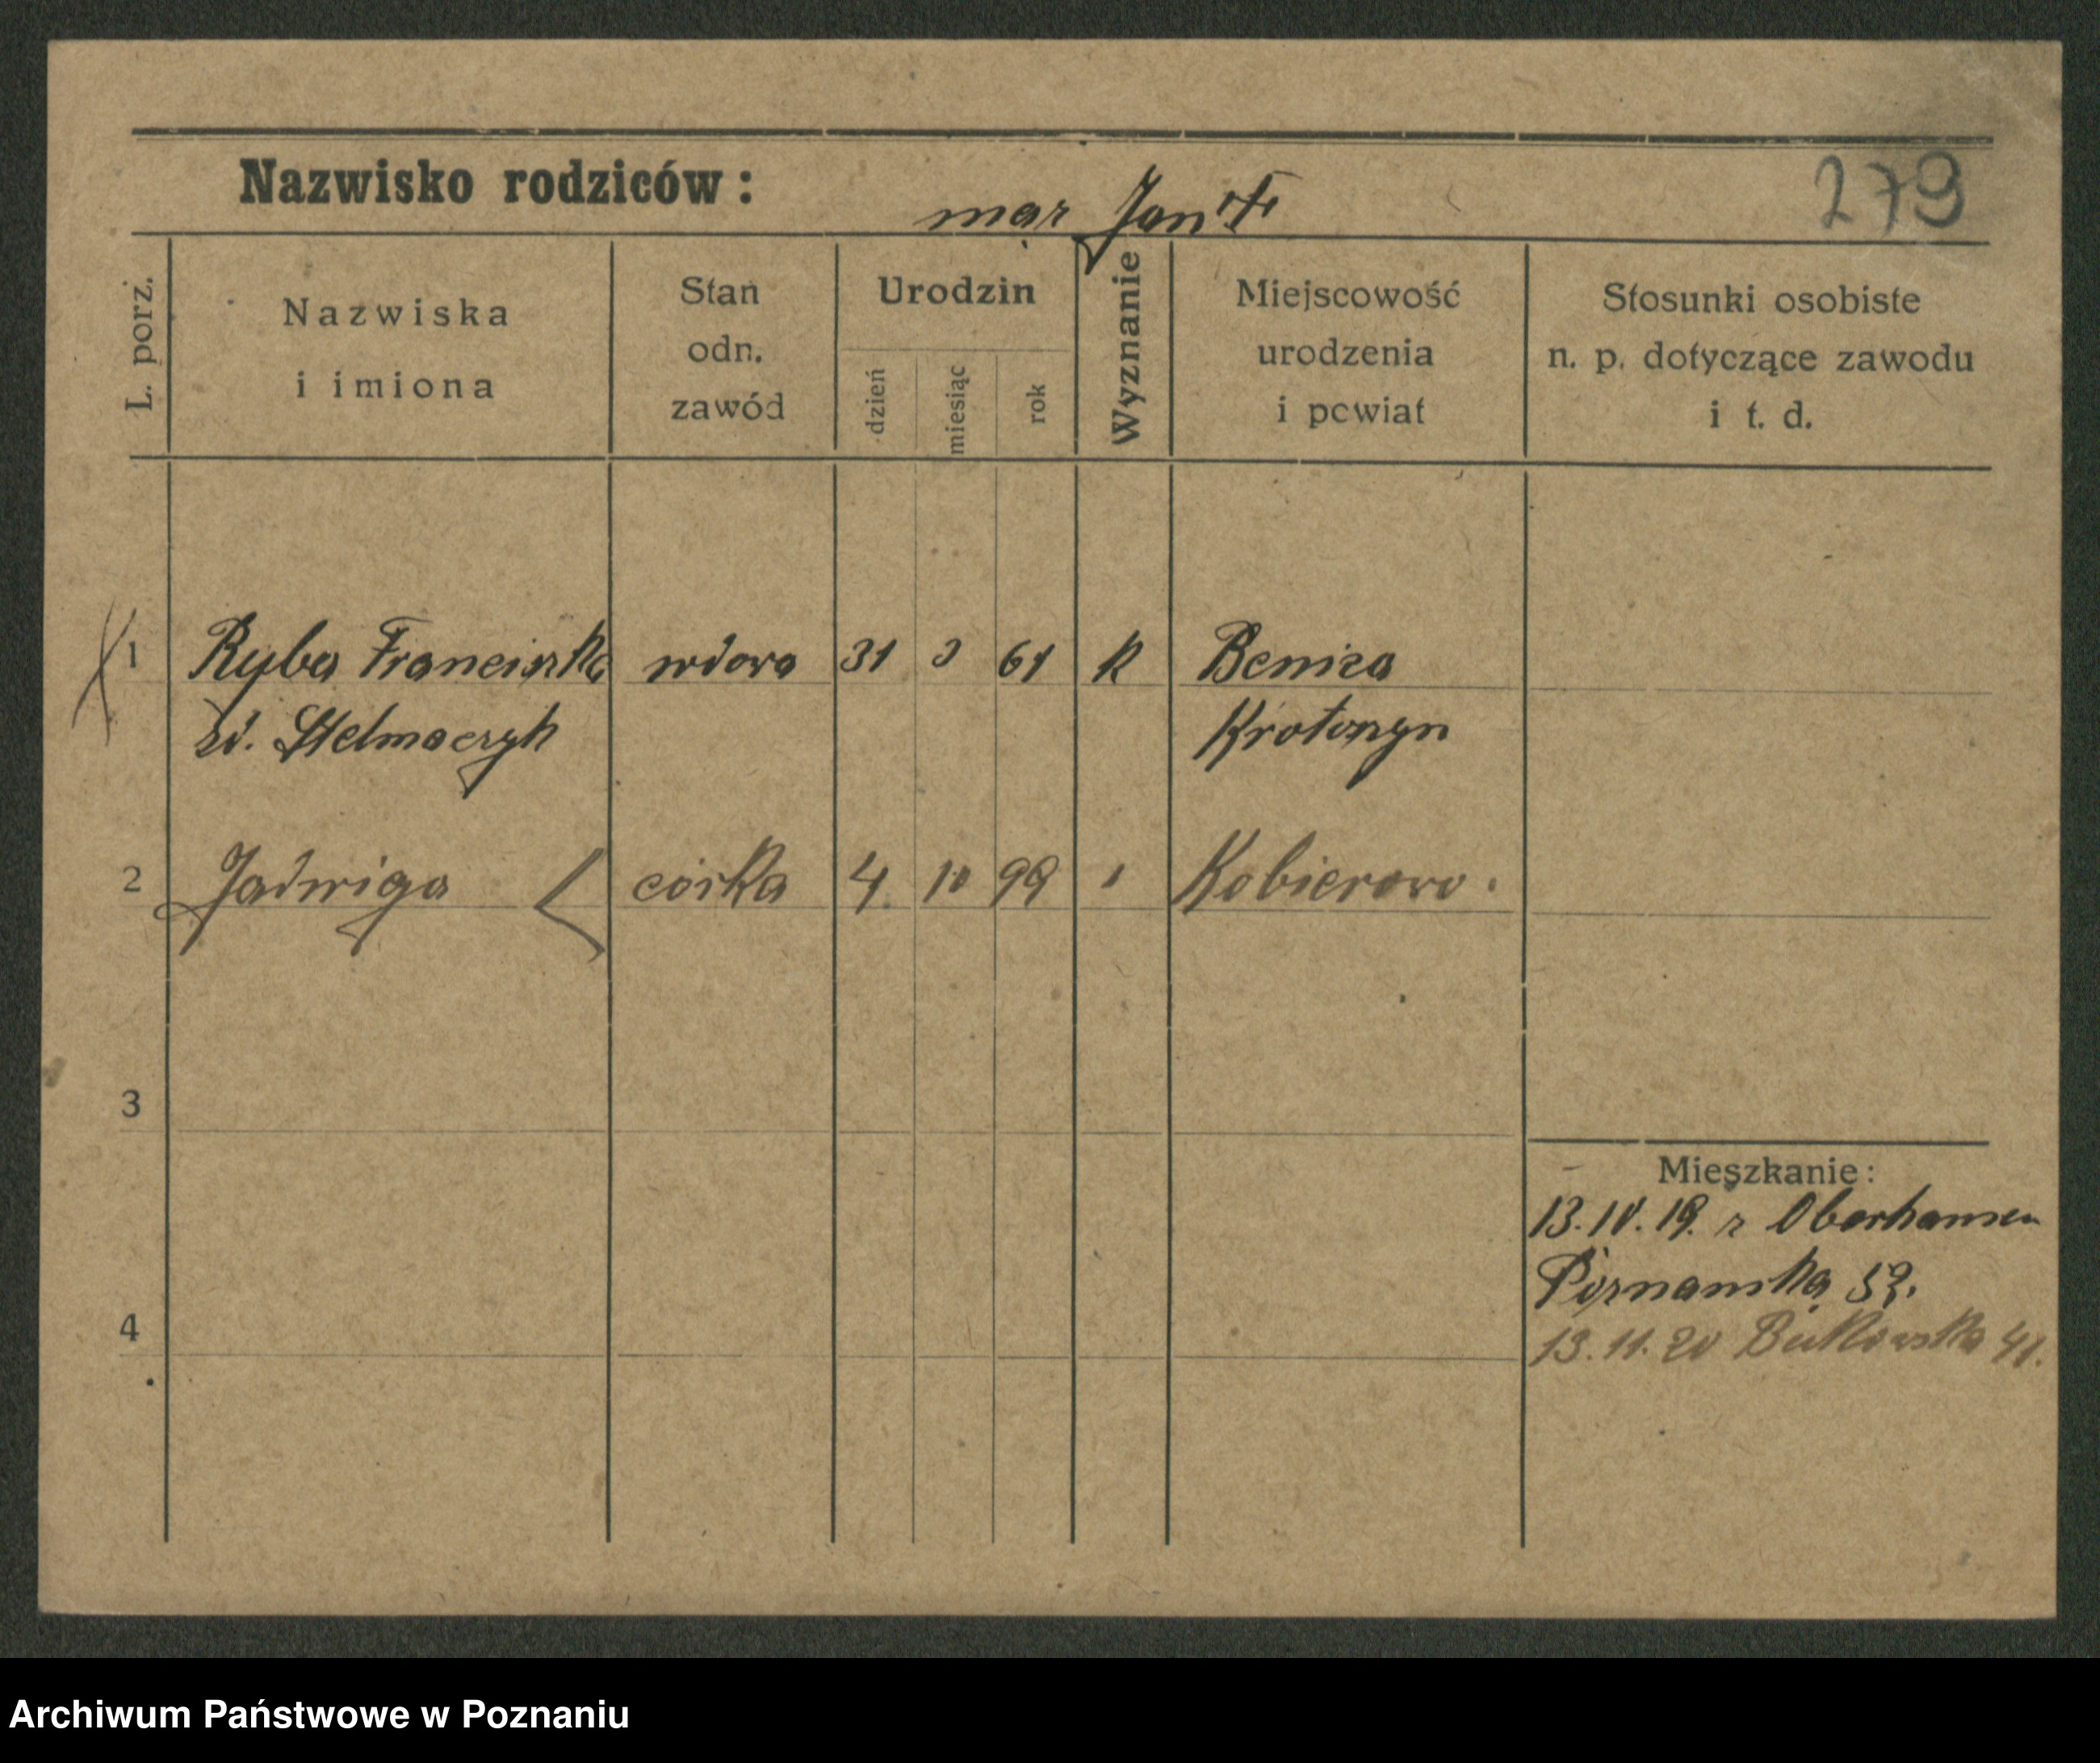 Nazwisko rodziców:
mąż Jan †
279
L. porz.
Nazwiska
i imiona
Stan
odn.
zawód
Urodzin
dzień
miesiąc
rok
Wyznanie
Miejscowość
urodzenia
i powiat
Stosunki osobiste
n. p. dotyczące zawodu
i t. d.
1 Ryba Franciszka wdowa 31 3 61 K Benice
zd. Stelmaczyk Krotoszyn
2 Jadwiga < córka 4 10 99 " Kobierno.
3
4
Mieszkanie:
13.IV.19. z Oberhausen
Poznańska 52.
13.11.20 Bukowska 41.
Archiwum Państwowe w Poznaniu